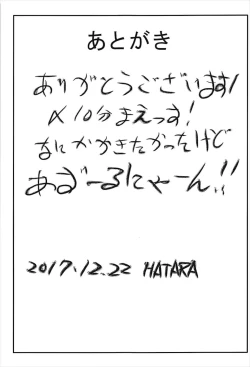 あとがき
ありがとうございます!
〆10分まえっす!
なにかかきたかったけど
あずーるにゃーん!!
2017.12.22 HATARA